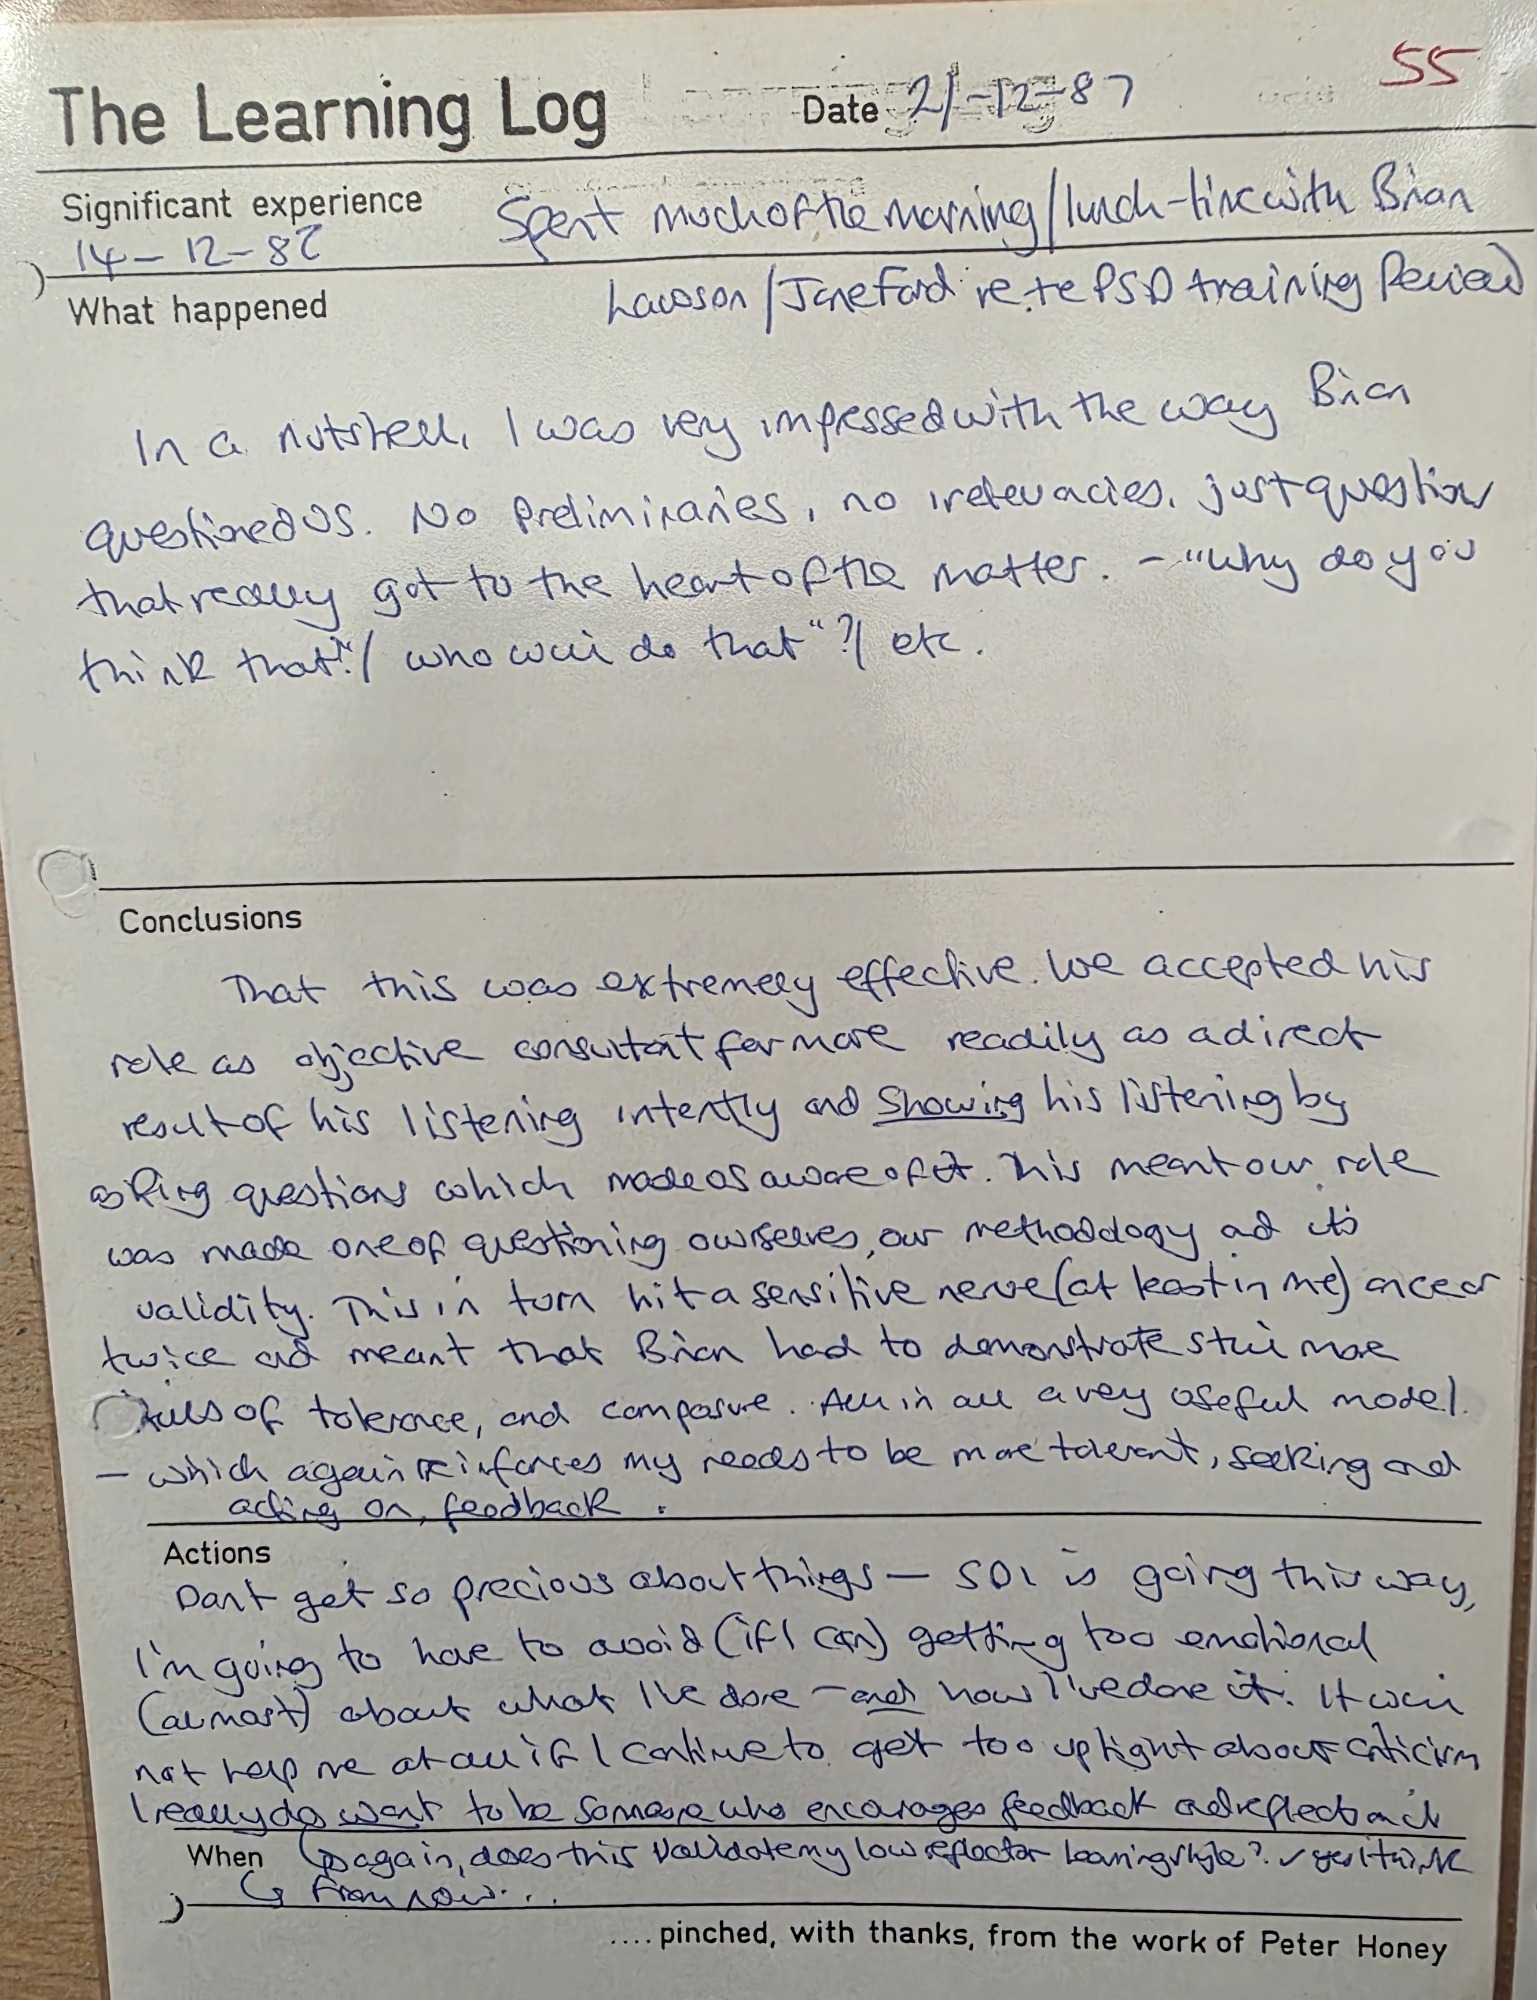 55
The Learning Log
Date 21-12-87
Significant experience
Spent much of the morning/lunch-time with Brian
14-12-87
Lawson/Jane Ford re. te PSD training Review
What happened
In a nutshell, I was very impressed with the way Brian
questioned us. No preliminaries, no irelevacies, just question
that really got to the heart of the matter. - "why do you
think that"?/ who will do that"?/ etc.
Conclusions
That this was extremely effective. We accepted his
role as objective consultant far more readily as a direct
result of his listening intently and showing his listening by
asking questions which made us aware of it. This meant our role
was made one of questioning ourselves, our methodology and its
validity. This in turn hit a sensitive nerve (at least in me) once or
twice and meant that Brian had to demonstrate still more
skills of tolerance, and composure. All in all a very useful model.
- which again reinforces my needs to be more tolerant, seeking and
acting on, feedback.
Actions
Don't get so precious about things - SDI is going this way,
I'm going to have to avoid (if I can) getting too emotional
(almost) about what I've done - and how I've done it. It will
not help me at all if I continue to get too uptight about criticism
I really do want to be someone who encourages feedback and reflects on it
When
again, does this validate my low reflector learning style? ✓ yes I think
↳ From now...
.... pinched, with thanks, from the work of Peter Honey